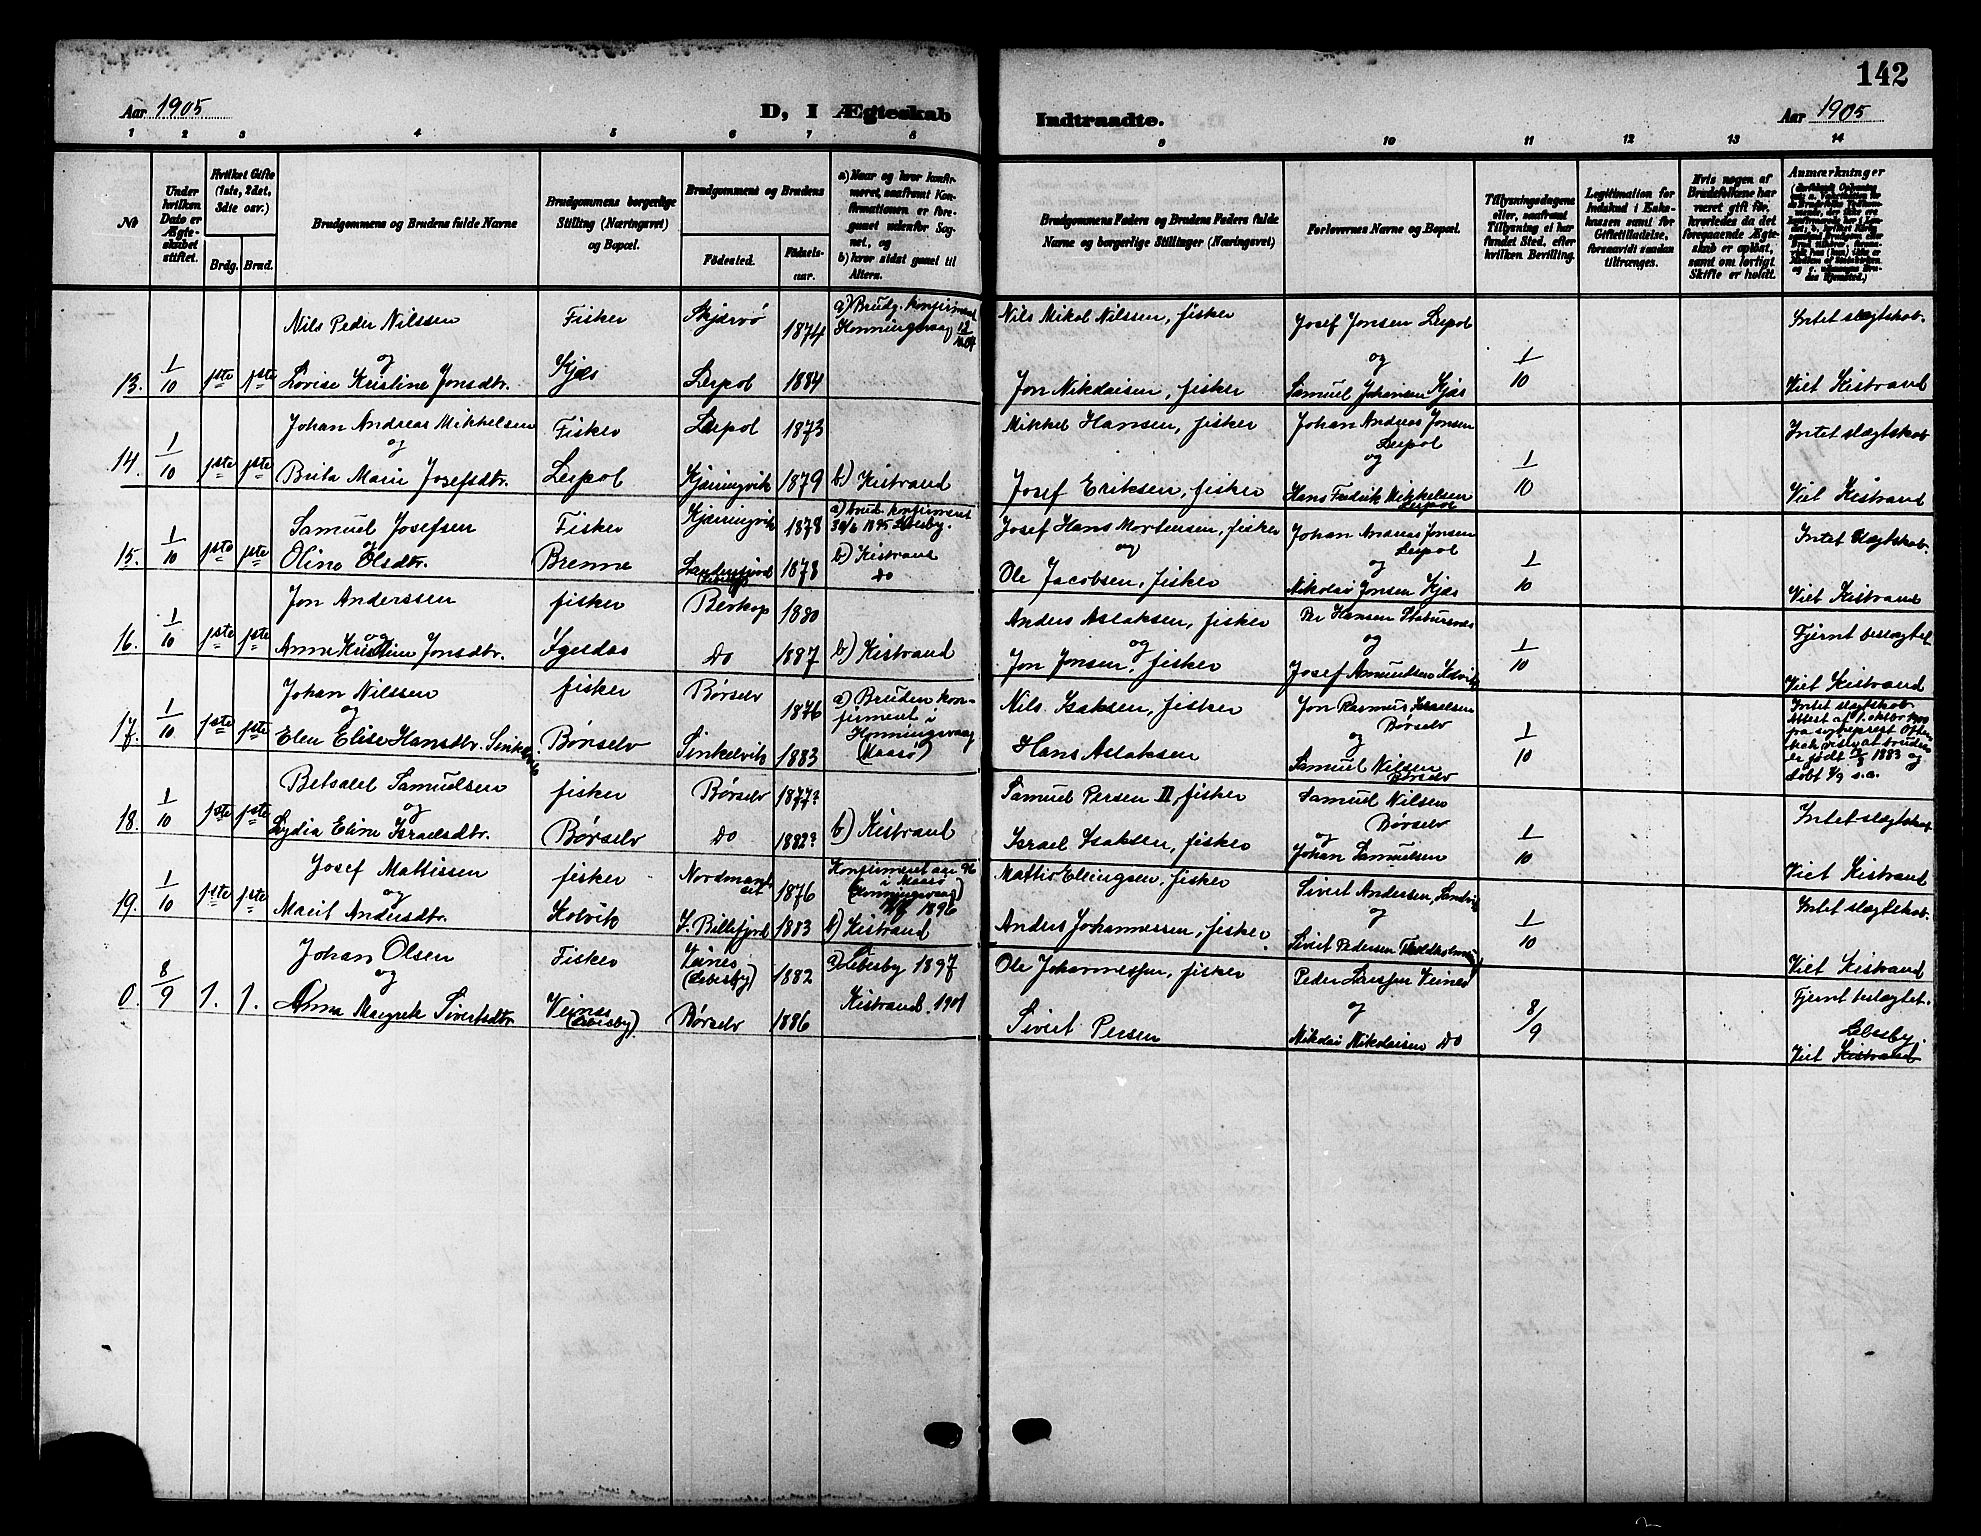 142
Aar 1905
D, I Ægteskab
Indtraadte.
Aar 1905
1 2 3 4 5 6 7 8 9 10 11 12 13 14
No
Under hvilken Dato er Ægteskabet stiftet.
Hvilket Gifte (1ste, 2det, 3die osv.)
Brdg. Brud.
Brudgommens og Brudens fulde Navne
Brudgommens borgerlige Stilling (Næringsvei) og Bopæl.
Brudgommens og Brudens
Fødested. Fødselsaar.
a) Naar og hvor konfirmeret, saafremt Konfirmationen er foregaaet udenfor Sognet, og
b) hvor sidst gaaet til Alters.
Brudgommens Faders og Brudens Faders fulde Navne og borgerlige Stillinger (Næringsvei)
Forlovernes Navne og Bopæl.
Tillysningsdagene eller, saafremt Tillysning ei har fundet Sted, efter hvilken Bevilling.
Legitimation for Indskud i Enkekassen samt for Giftetilladelse, forsaavidt saadan tiltrænges.
Hvis nogen af Brudefolkene har været gift før, hvorledes da det foregaaende Ægteskab er opløst, samt om lovligt Skifte er holdt.
Anmærkninger
Nils Peder Nilssen Fisker Skjærvø 1874 a) Brudg. konfirmeret Honningsvaag Nils Mikal Nilssen, fisker Josef Jonsen Leipol Intet slægtskab.
og og
13. 1/10 1ste 1ste Lovise Kristine Jonsdtr. Kjæs Leipol 1884 Jon Nikolaisen, fisker Samuel Johansen Kjæs 1/10 Viet Kistrand
Johan Andreas Mikkelsen Fisker Leipol 1873 Mikkel Hansen, fisker Johan Andreas Jonsen Leipol Intet slægtskab
og og
14. 1/10 1ste 1ste Brita Marie Josefsdtr. Leipol Kjæringvik 1879 b) Kistrand Josef Eriksen, fisker Hans Fredrik Mikkelsen Leipol 1/10 Viet Kistrand
Samuel Josefsen Fisker Kjæringvik 1878 a) brud. konfirmeret 30/6 1895 Lebesby. Josef Hans Mortensen, fisker Johan Andreas Jonsen Leipol Intet slægtskab.
og og og
15. 1/10 1ste 1ste Oline Olsdtr. Brenna 1878 b) Kistrand Do Ole Jacobsen, fisker Nikolai Jonsen Kjæs 1/10 Viet Kistrand
Jon Anderssen fisker Bevkop 1880 Anders Aslaksen, fisker Per Hansen Staburnes Fjernt beslægtet
og og og
16. 1/10 1ste 1ste Anne Kristine Jonsdtr. Igeldas Do 1887 b) Kistrand Jon Jonsen, fisker Josef Amundsen 1/10 Viet Kistrand
Johan Nilssen fisker Børselv 1876 a) Bruden konfirmeret i Honningsvaag (Maasø) Nils Isaksen, fisker Jon Rasmus Israelsen Børselv Intet slægtskab.
og og
17. 1/10 1ste 1ste Elen Elise Hansdtr. Sinkelvik Børselv Sinkelvik 1883 Hans Aslaksen Samuel Nilsen Børselv 1/10 Attest af 1. oktbr. fra sogneprest at bruden er født 1883 og døbt 4/9 s.a.
Betsalel Samuelsen fisker Børselv 1877? Samuel Persen II, fisker Samuel Nilsen Børselv Intet slægtskab.
og og
18. 1/10 1ste 1ste Lydia Eline Israelsdtr. Børselv Do 1882? b) Kistrand Israel Isaksen, fisker Johan Samuelsen 1/10 Viet Kistrand
Josef Mattissen fisker Nordmanset 1876 Konfirmeret aar 96 i Maasø (Honningsvaag) 1896 Mattis Ellingsen, fisker Sivert Andersen, Sandvik Intet slægtskab.
og og
19. 1/10 1ste 1ste Marit Andersdtr. Kolvik Y. Billefjord 1883 b) Kistrand Anders Johannessen, fisker. Sivert Pedersen 1/10 Viet Kistrand
Johan Olsen Fisker Veines (Lebesby) 1882 Lebesby 1897 Ole Johannessen, fisker Peder Larssen Veines Fjernt beslægtet.
og og
0. 8/9 1. 1. Anna Margrete Sivertsdtr Veines (Lebesby). Børselv 1886 Kistrand. 1901 Sivert Persen Nikolai Nikolaisen Do 8/9 Lebesby.
Viet Kistrand